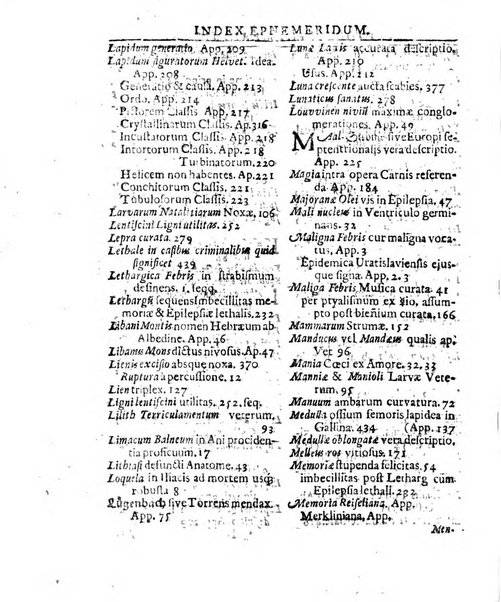 INDEX EPHEMERIDUM.
Lapidum generatio App. 209
Lapidum figuratorum Helvet. idea.
App. 208
Generatio & causa. App. 213
Ordo. App. 214
Classis. App. 217
Crystallinatum Classis. Ap. 316
Incustatorum Classis. App. 218
Intortorum Classis. App. 218
Turbinatorum. 220
Helicem non habentes. Ap. 221
Conchitorum Classis. 221
Tubulosorum Classis. 223
Larvarum Natalitiarum Noxæ, 106
Lentiscini Ligni utilitas. 252
Lepra curata. 279
Lethale in casibus criminalibus quid
significet 439
Lethargica Febris in strabismum
desinens. 1. seqq.
Lethargū sequens imbecillitas me-
moriæ & Epilepsiæ lethalis. 232
Libani Montis nomen Hebræum ab
Albedine. App. 46
Libanus Mons dictus nivosus. Ap. 47
Lienis excisio absque noxa. 370
Ruptura à percussione. 12
Lien triplex. 127
Ligni lentiscini utilitas. 252. seq.
Lilith Terriculamentum veterum.
93
Limacum Balneum in Ani prociden-
tia proficuum. 17
Lithiasi defuncti Anatome. 43
Loquela in Iliacis ad mortem usq;
robusta 8
Lügenbach sive Torrens mendax.
App. 75
Lunæ accurata descriptio.
App. 210
Usus. App. 212
Luna crescente aucta scabies, 377
Lunaticus sanatus. 278
Louvvinen nivium maximæ conglo-
merationes. App. 49
Mal-Ström sive Europi se-
ptentrionalis vera descriptio.
App. 225
Magia intra opera Carnis referen-
da App. 184
Majoranæ Olei vis in Epilepsia. 47
Mali nucleus in Ventriculo germi-
nans. 31
Maligna Febris cur maligna voca-
tus, App. 3
Epidemica Uratislaviensis ejus-
que signa. App. 2. 3
Maliga Febris Musica curata. 41
per ptyalismum ex ☿io, assum-
pto post bieñium curata. 166
Mammarum Strumæ. 152
Manducus vel Mandæus qualis ap.
Vet 96
Mania Cœci ex Amore. 32. 33
Manniæ & Manioli Larvæ Vete-
rum. 95
Manuum ambarum curvatura. 72
Medulla ossium femoris lapidea in
Gallina. 434 (App. 137
Medullæ oblongatæ vera descriptio.
Melleus ros vitiosus. 171
Memoriæ stupenda felicitas. 54
imbecillitas post Letharg cum
Epilepsia lethali. 232
Memoria Reiseliana. App.
Merkliniana, App.
Men-